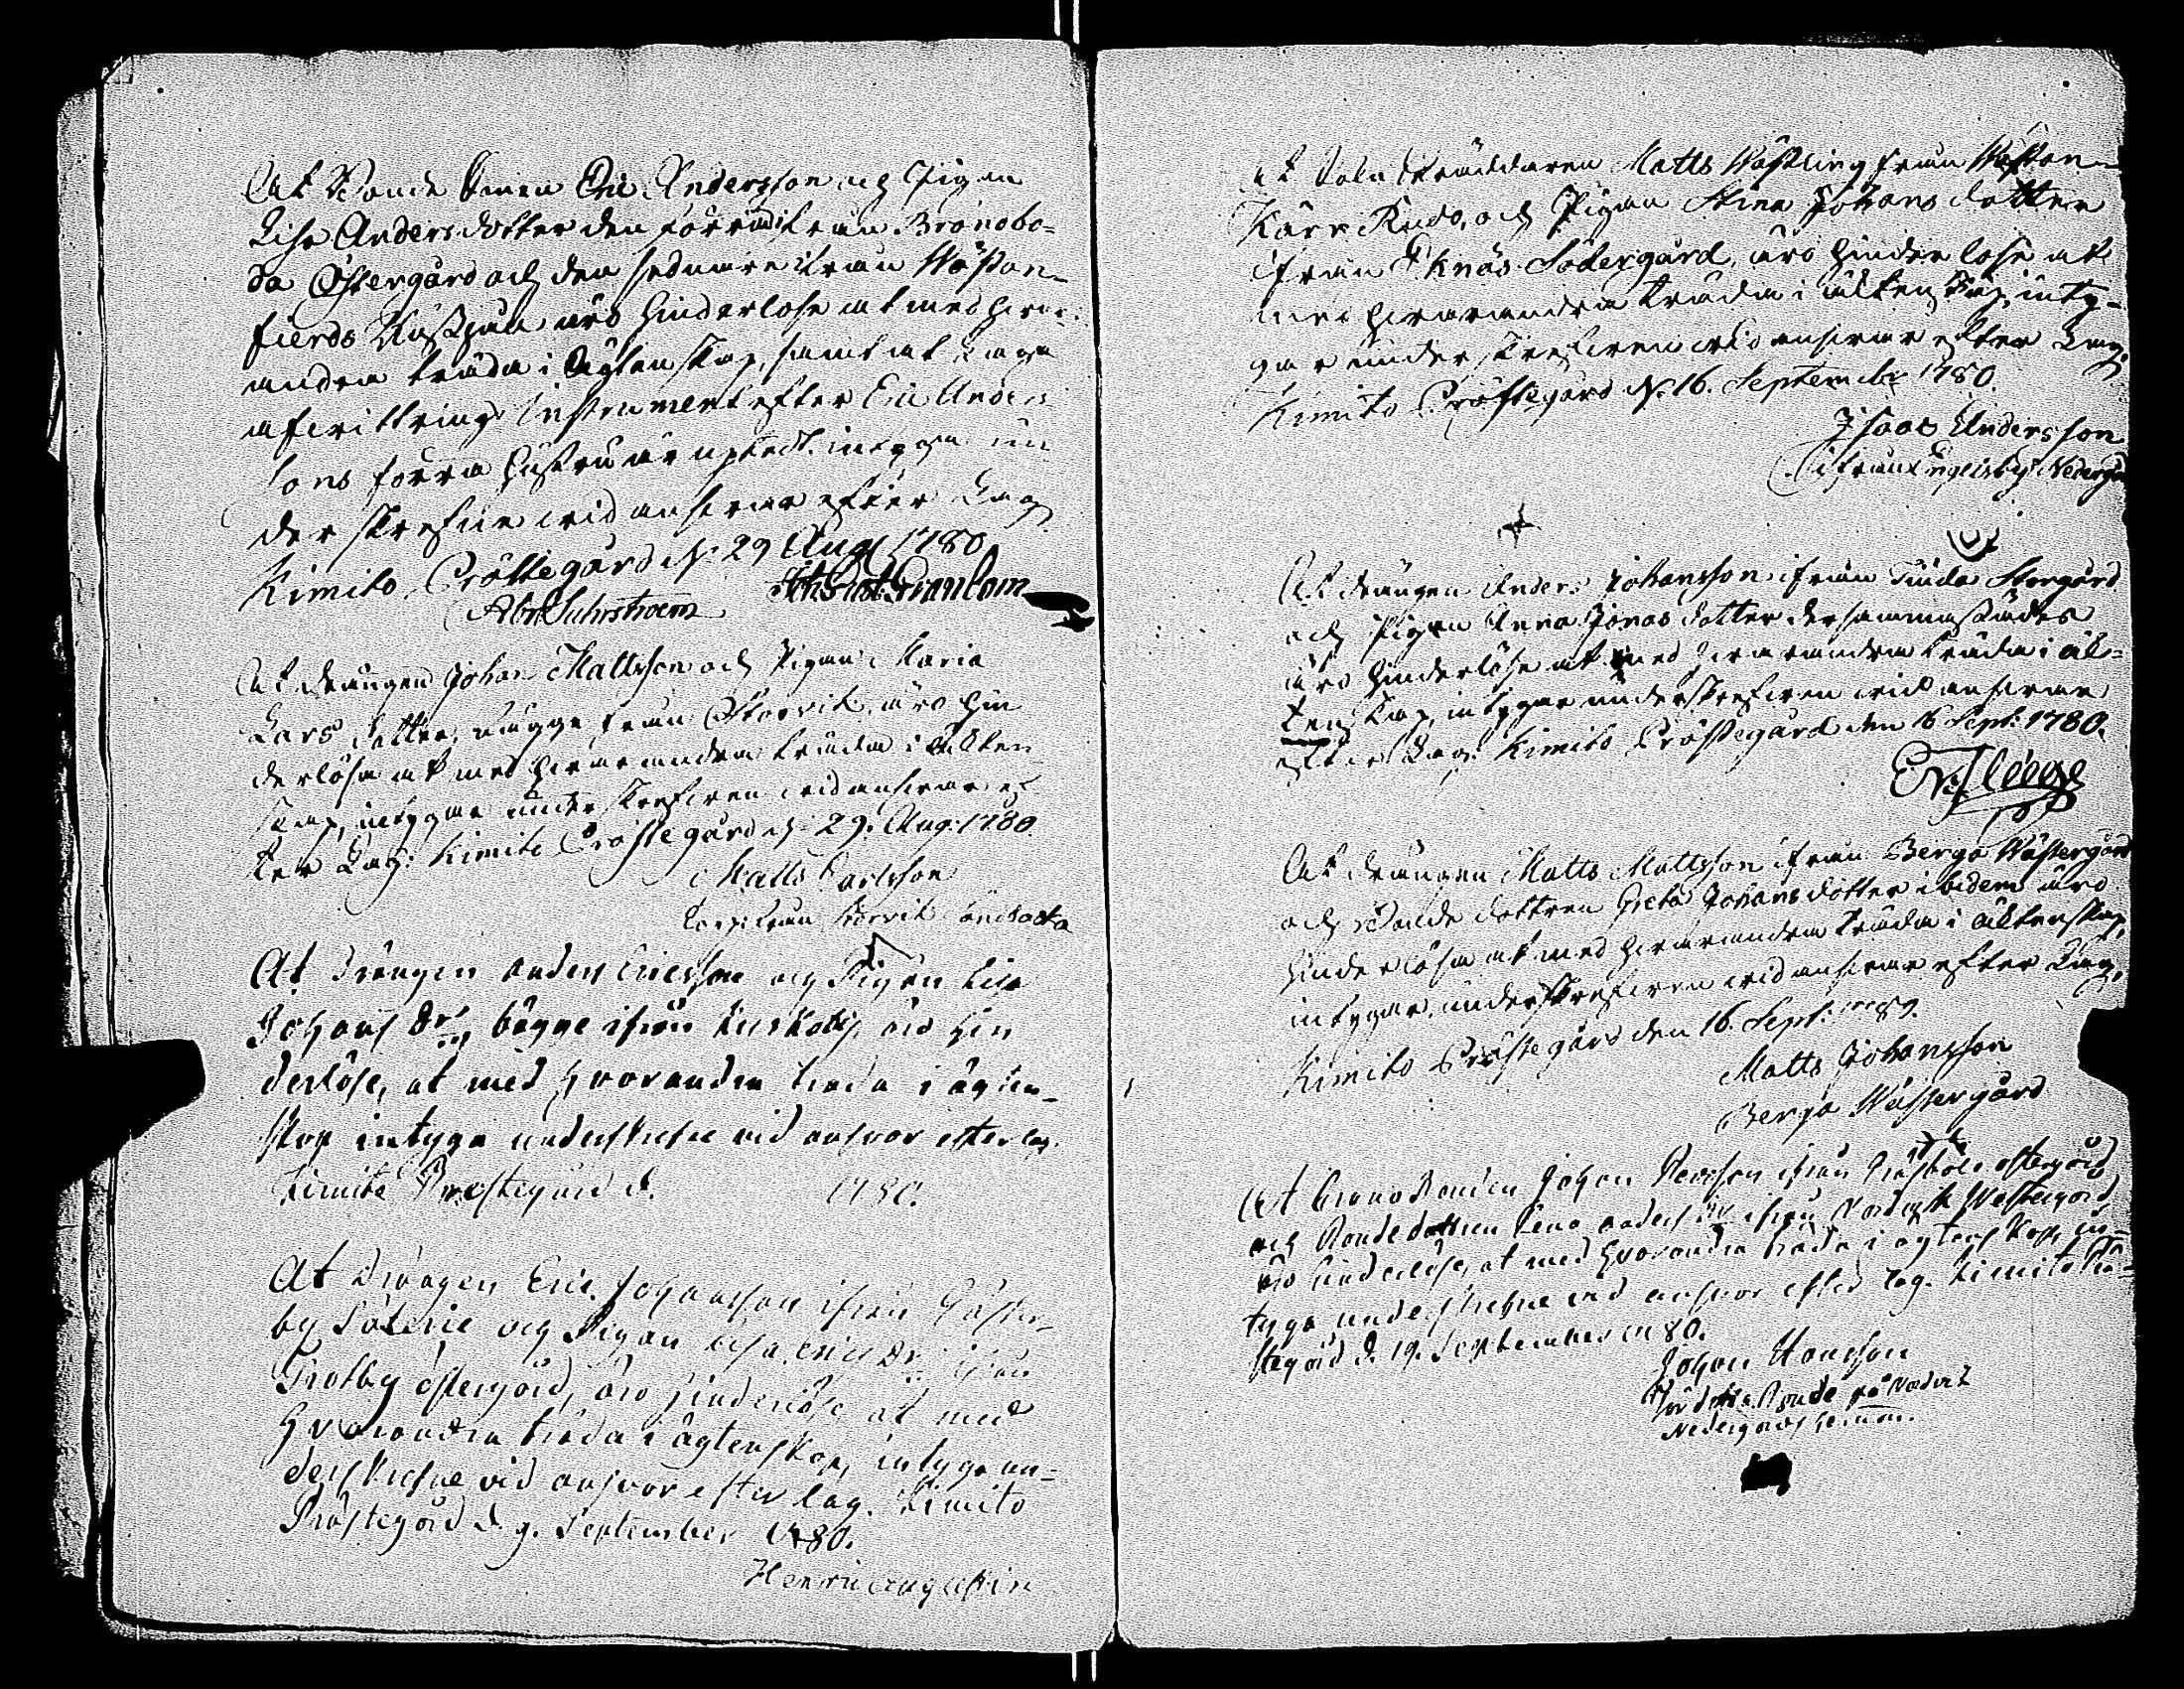 At Bonde Enkan Eric Andersson och Pigan
Lisa Anders dotter den förra ifrån Brånobo-
da Östergård och den sednare ifrån Wästan-
fierds äro hinderlöse at med hvar-
andra träda i Ägtenskap, samt at Laga
afvittrings Instrument efter Eric Anders-
sons förra hustru är uprättat intyga un-
derskrefne vid answar efter Lag
Kimito Prästegård d. 29 Aug 1780
Abr. Suhrstroem
At drängen Johan Mattsson och Pigan Maria
Lars dotter, bägge från Storvik, äro hin
derlösa at med hvarandra träda i äkten
skap, intygar underskrefven vid answar ef
ter Lag: Kimito Prästegård d. 29. Aug: 1780
Matts Carlsson
från Storvik
At Drängen Anders Ericsson och Pigan Lisa
Johans Dr, bägge ifrån äro hin
derlöse, at med hvarandra träda i ägten-
skap intyga underskrefne vid ansvar efter lag.
Kimito Prästegård d. 1780.
At Drängen Eric Johansson ifrån
by Säterie och Pigan Lisa Erics Dr ifrån
Trotby östergård, äro hinderlöse, at med
hvarandra träda i ägtenskap, intyga un=
derskrefne vid ansvar efter lag. Kimito
Prästegård d. 9. September 1780.
Henric Augustin
At Matts Wästling från Wästan-
Kärr Rudo, och Pigan Stina Johans dotter
ifrån Eknäs Södergård, äro hinder lösa at
med hvarandra träda i äktenskap, inty-
gar underskrefven vid answar efter Lag.
Kimito Prästegård d. 16. September 1780.
Isaac Andersson
ifrån Engelsby Nedergå
At drängen Anders Johansson ifrån Storgård
och Pigan Anna Jonas dotter dersammastädes
äro hinderlöse at med hvarandra träda i äk-
tenskap, intygar underskrefven vid answar
efter Lag. Kimito Prästegård den 16 Sept: 1780.
At drängen Matts Mattsson ifrån Berga Wästergård
och Bonde dottren Greta Johans dotter ibidem äro
hinderlösa at med hvarandra träda i äktenskap,
intygar underskrefven vid answar efter Lag,
Kimito Prästegård den 16. Sept: 1780.
Matts Johansson
Berga Wästergård
At Crono Bonden Johan ifrån östergård
och Bondedottren Lena Anders Dr ifrån Nordvik Westergård,
äro hinderlöse, at med hvarandra träda i ägtenskap, in=
tyga underskrefne vid ansvar efter lag. Kimito Prä=
stegård d. 19. September 1780.
Johan Hansson
Bonde på Nordvik
Nedergårds hemman.